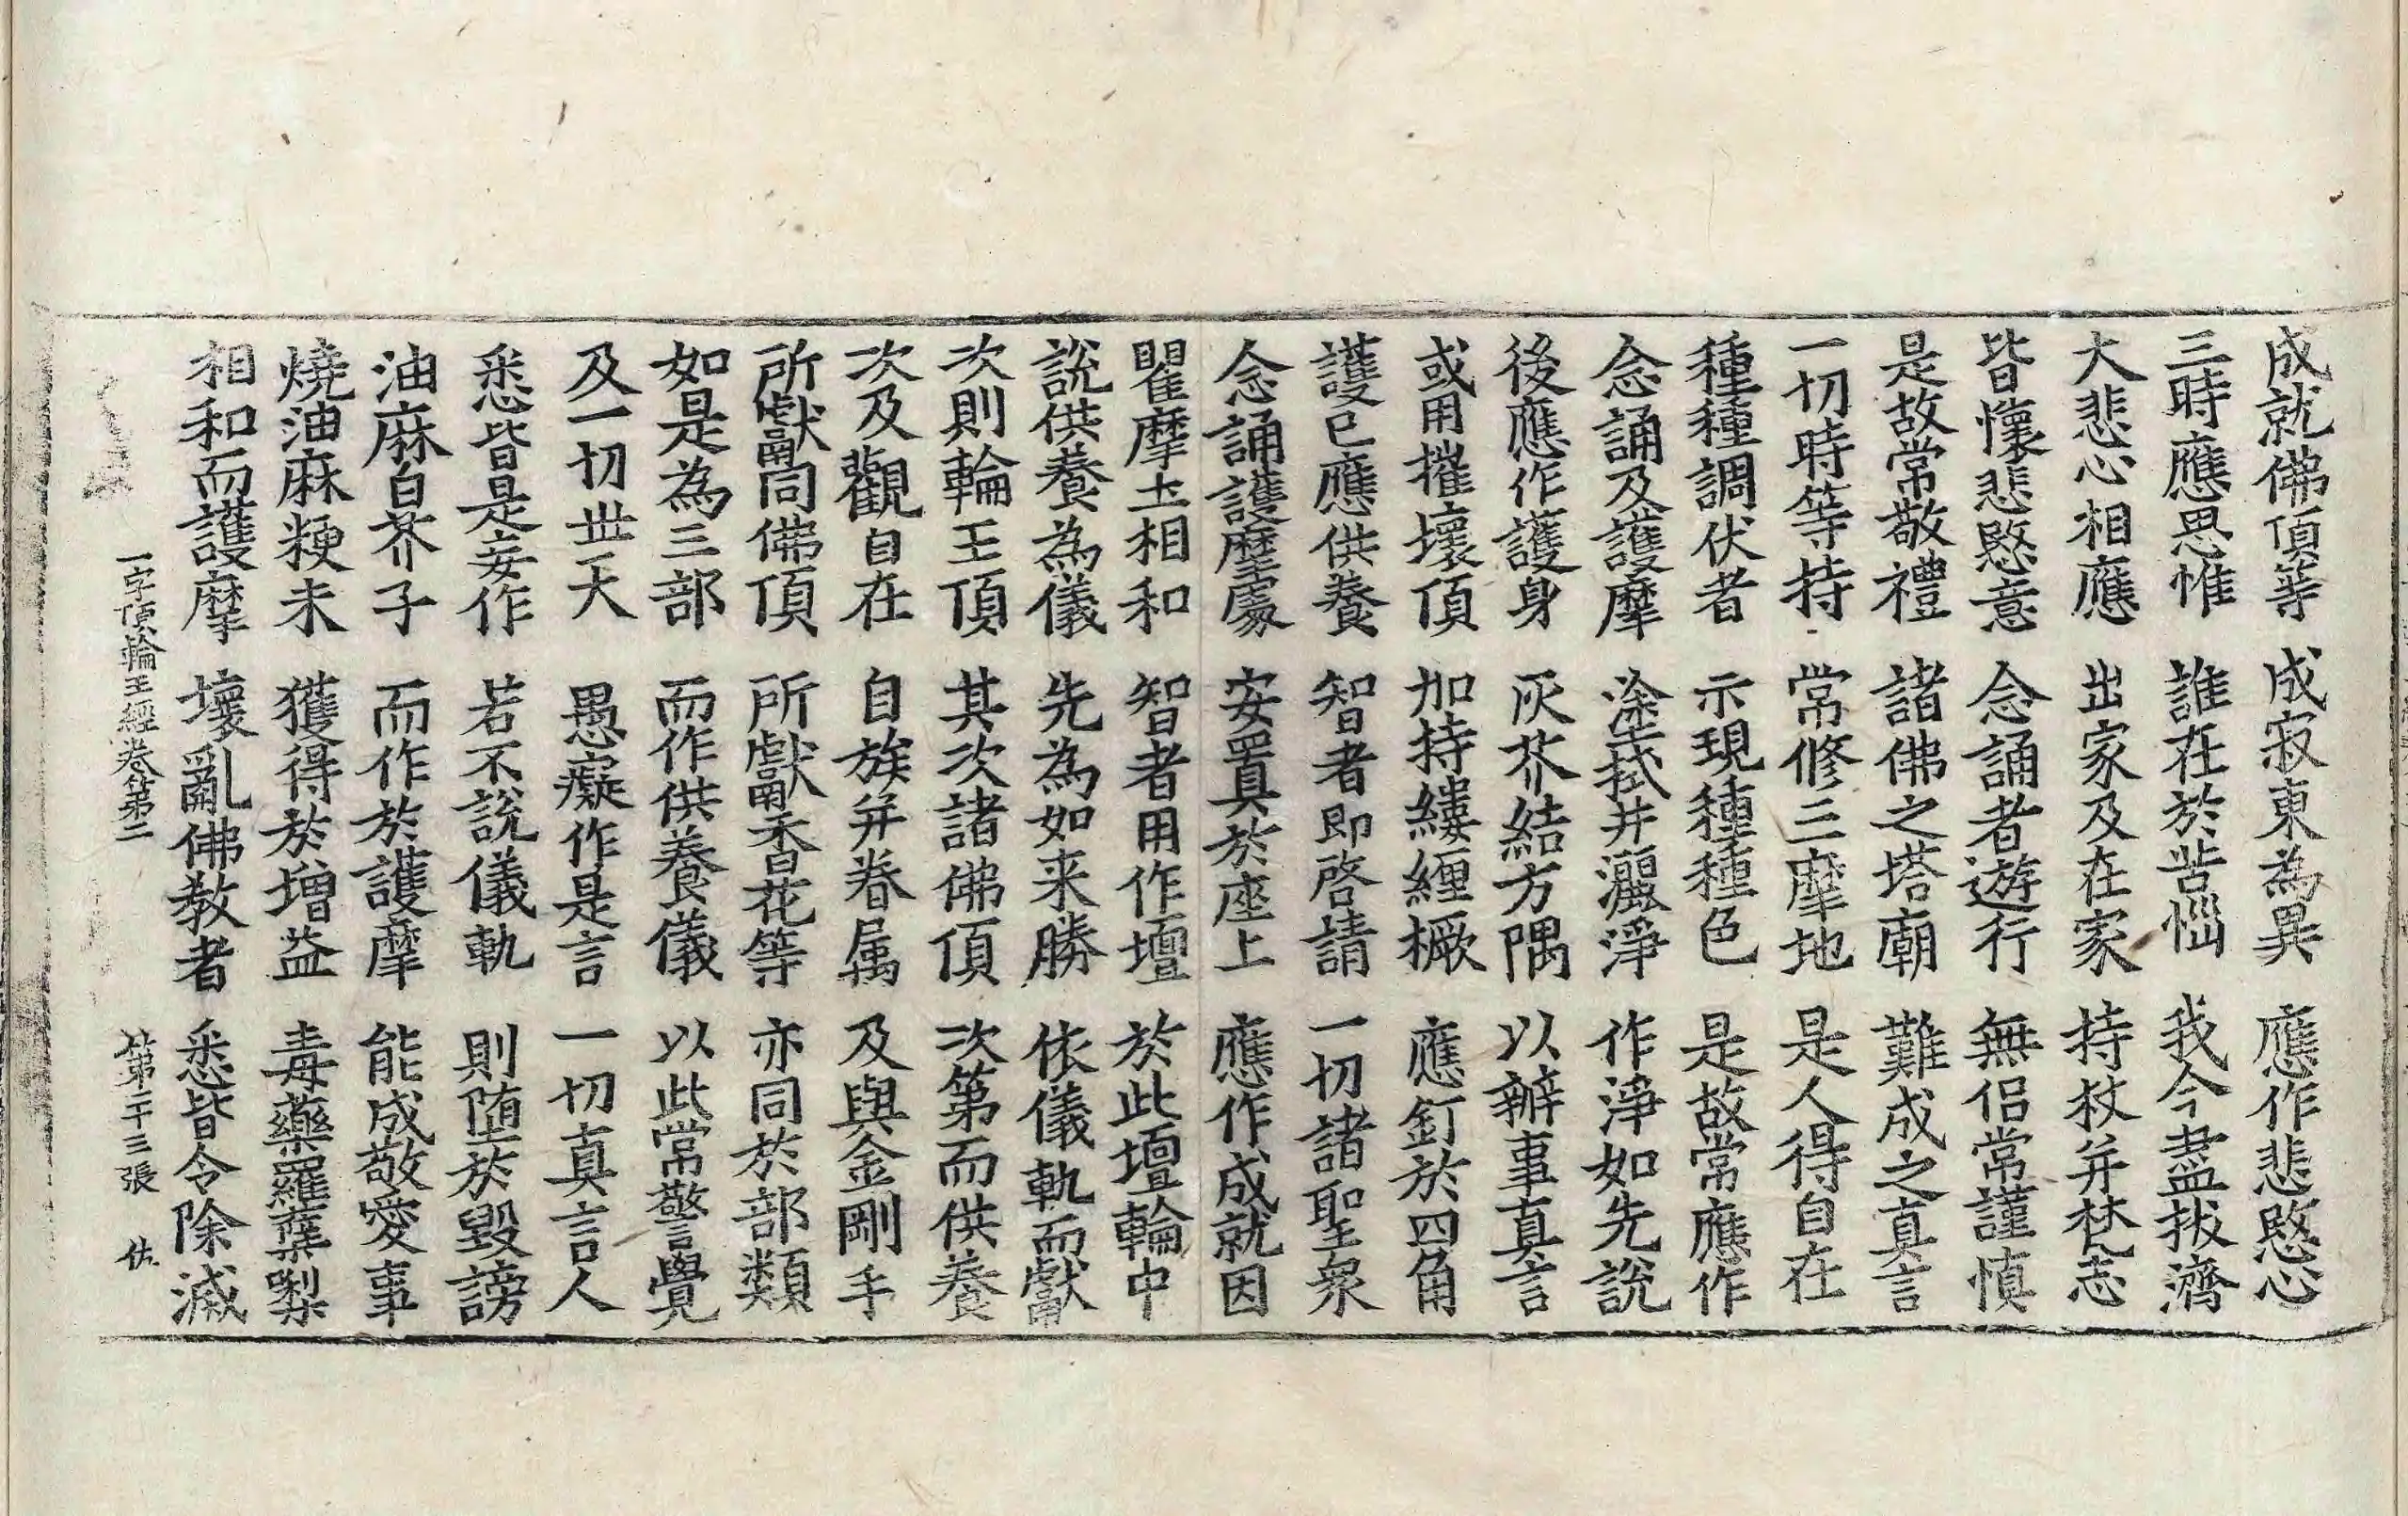 成就佛頂等　成寂東為異　應作悲愍心
三時應思惟　誰在於苦惱　我今盡拔濟
大悲心相應　出家及在家　持杖并梵志
皆懷悲愍意　念誦者遊行　無侣常謹慎
是故常敬禮　諸佛之塔廟　難成之真言
一切時等持　常修三摩地　是人得自在
種種調伏者　示現種種色　是故常應作
念誦及護摩　塗拭并灑淨　作淨如先說
後應作護身　灰芥結方隅　以辦事真言
或用摧壞頂　加持縷纏橛　應釘於四角
護已應供養　智者即啓請　一切諸聖衆
念誦護摩處　安置於座上　應作成就因
瞿摩土相和　智者用作壇　於此壇輪中
說供養為儀　先為如来勝　依儀軌而獻
次則輪王頂　其次諸佛頂　次第而供養
次及觀自在　自族并眷属　及與金剛手
所獻同佛頂　所獻香花等　亦同於部類
如是為三部　而作供養儀　以此常警覺
及一切世天　愚癡作是言　一切真言人
悉皆是妄作　若不說儀軌　則堕於毀謗
油麻白芥子　而作於護摩　能成敬愛事
燒油麻粳米　獲得於增益　毒藥羅蘗㗚
相和而護摩　壞亂佛教者　悉皆令除滅
一字頂輪王經卷第二　第二十三張　佐